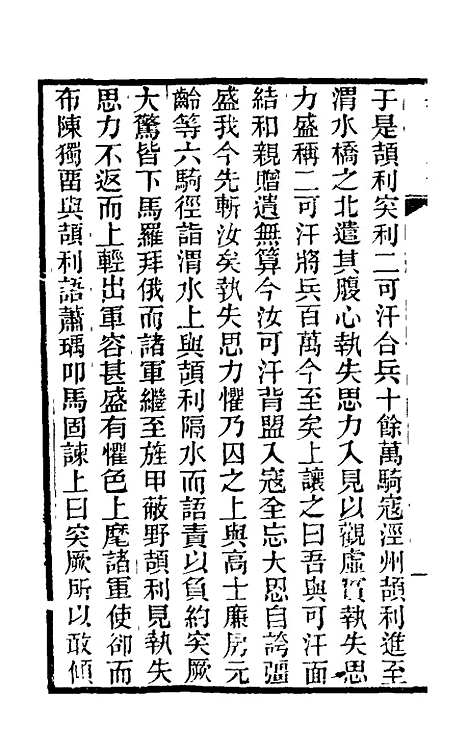 于是頡利突利二可汗合兵十餘萬騎寇涇州頡利進至
渭水橋之北遣其腹心執失思力入見以觀虛實執失思
力盛稱二可汗將兵百萬今至矣上讓之曰吾與可汗面
結和親贈遺無算今汝可汗背盟入寇全忘大恩自誇彊
盛我今先斬汝矣執失思力懼乃囚之上與高士廉房元
齡等六騎徑詣渭水上與頡利隔水而語責以負約突厥
大驚皆下馬羅拜俄而諸軍繼至旌甲蔽野頡利見執失
思力不返而上輕出軍容甚盛有懼色上麾諸軍使卻而
布陳獨畱與頡利語蕭瑀叩馬固諫上曰突厥所以敢傾